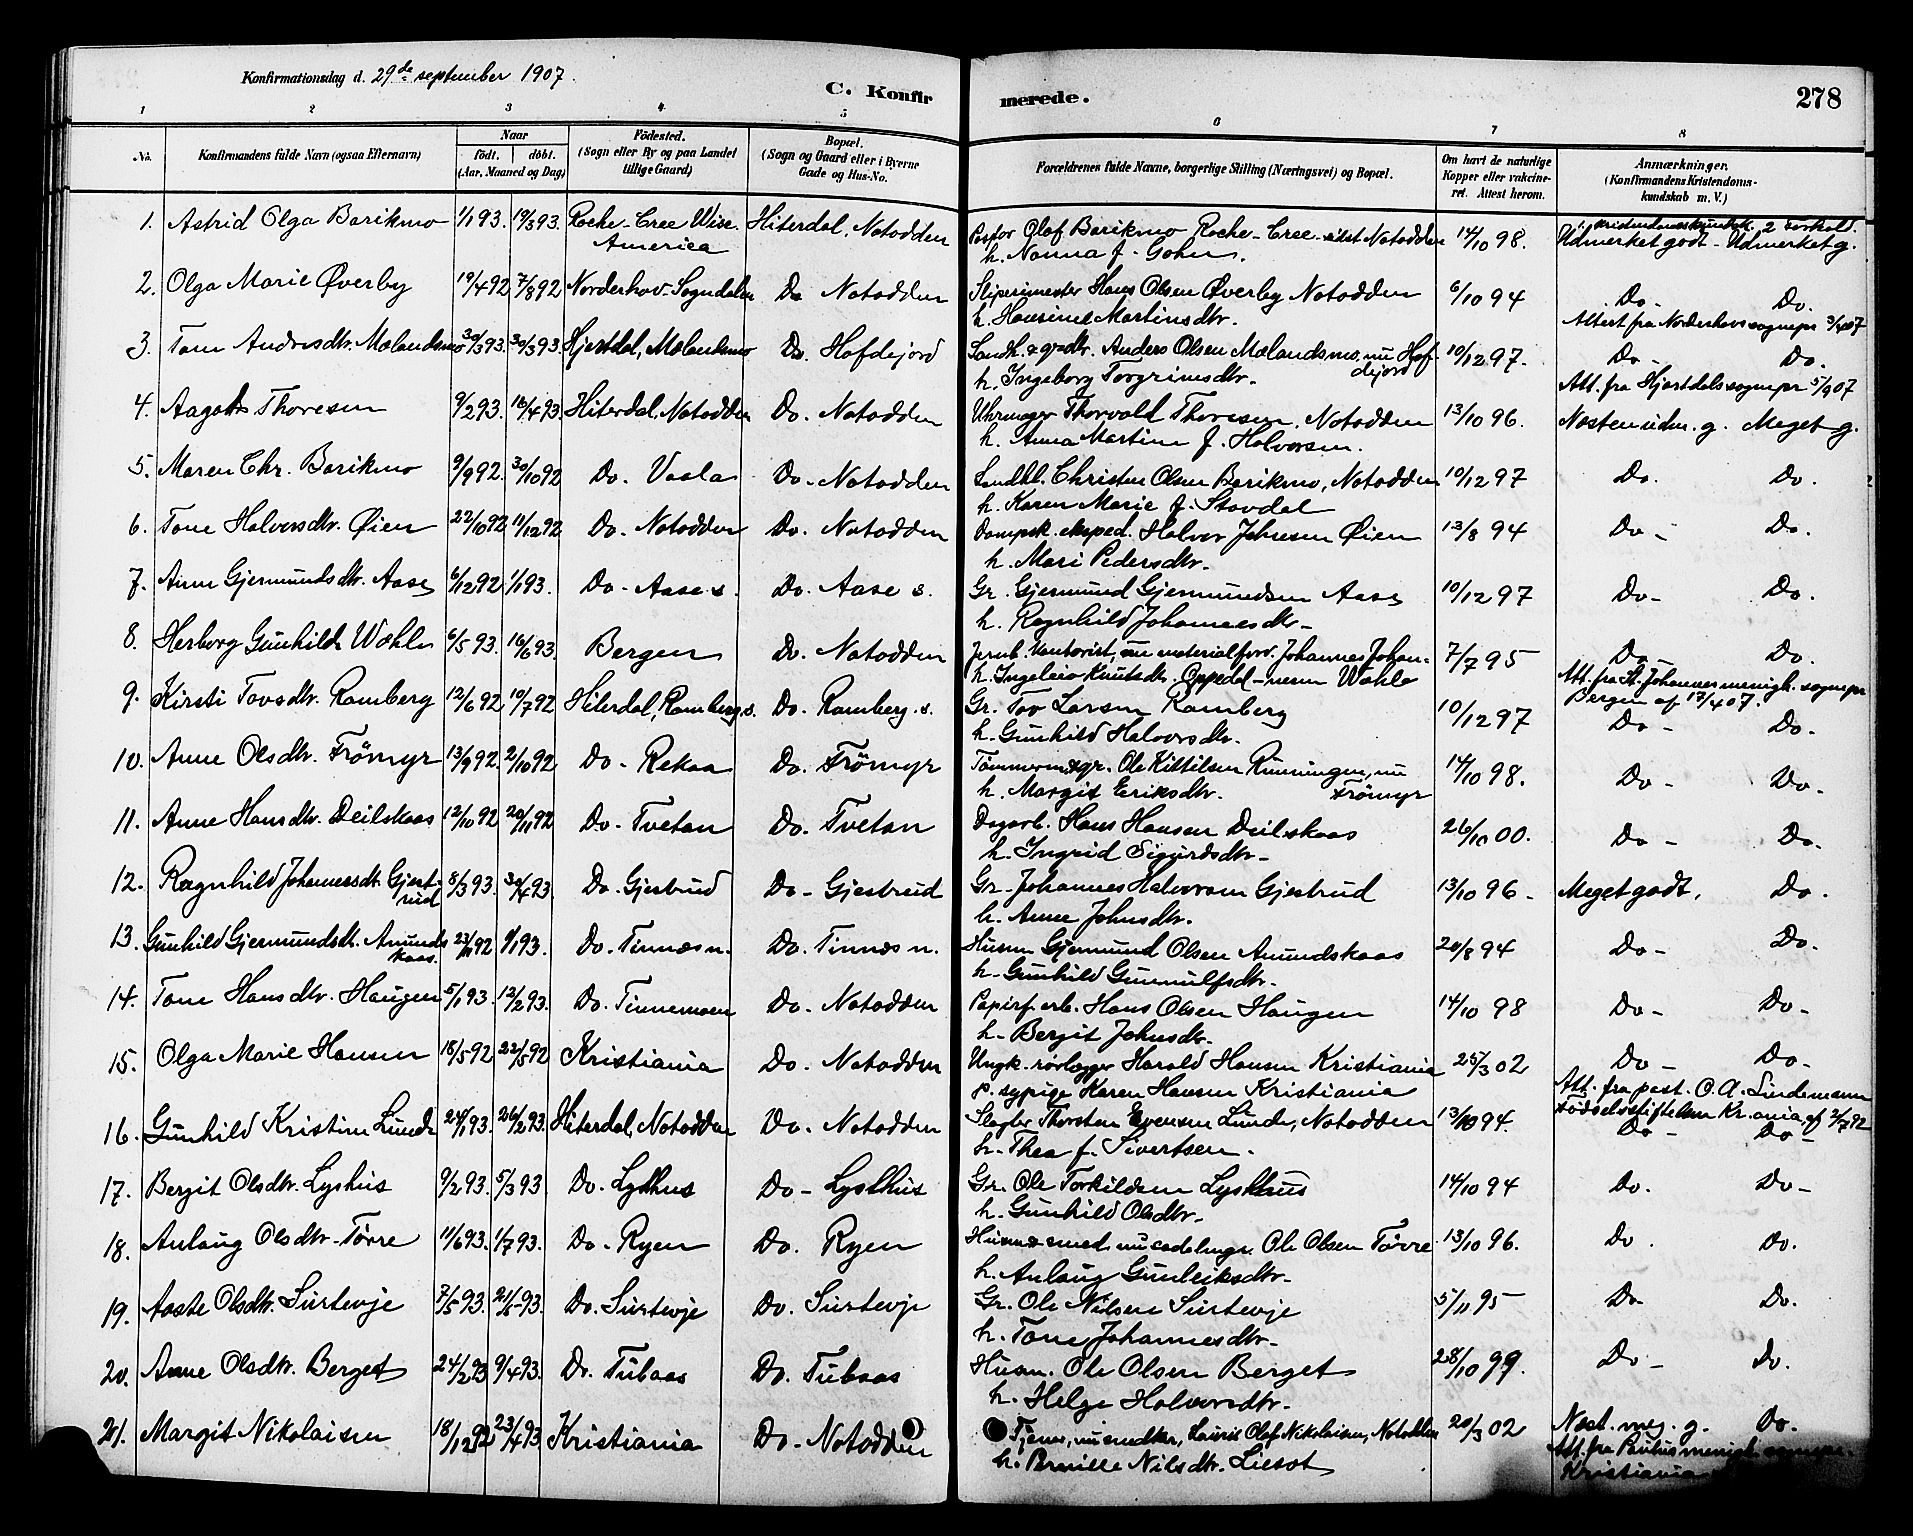 Konfirmationsdag d. 29de september 1907.
C. Konfirmerede.
278
1 2 3 4 5 6 7 8
No. Konfirmandens fulde Navn (ogsaa Efternavn) Naar født. døbt. (Aar, Maaned og Dag) Fødested. (Sogn eller By og paa Landet tillige Gaard) Bopæl. (Sogn og Gaard eller i Byerne Gade og Hus-No. Forældrenes fulde Navne, borgerlige Stilling (Næringsvei) og Bopæl. Om havt de naturlige Kopper eller vakcineret. Attest herom. Anmærkninger. (Konfirmandens Kristendomskundskab m. V.)
1. Astrid Olga Borikmo 1/1 93. 19/3 93. Roche-Cree Wise. America Hiterdal, Notodden Pastor Olaf Borikmo Roche-Cree sidst Notodden 14/10 98. 1. kristendomskundsk. 2 forhold.
h. Nanna f. Udmerket godt - Udmerket g.
2. Olga Marie Øverby 19/4 92 7/8 92 Norderhov-Sogndalen Do Notodden Sliperimester Hans Olsen Øverby Notodden 6/10 94 Do- Do.
h. Hansine Martinsdtr. Attest fra Norderhovs sognepr
3. Tone Andersdtr. Mælandsmo 30/3 93. Hjartdal, Mælandsmo Do. Hofdejord Landh. & grdtr. Anders Olsen Mælandsmo, nu Hofdejord 10/12 97. Do- Do.
h. Ingeborg Torgrimsdtr. Att. fra Hjartdals sognepr 5/9 07
4. Aagot Thoresen 9/2 93. 16/4 93 Hiterdal, Notodden Do. Notodden Uhrmager Thorvald Thoresen, Notodden 13/10 96. Næsten udm. g. Meget g.
h. Anna Martine f. Halvorsen.
5. Maren Chr. Borikmo 9/9 92. 30/10 92 Do. Vaala Do. Notodden Landhl. Christen Olsen Borikmo, Notodden 10/12 97 Do. Do.
h. Karen Marie f. Stovdal
6. Tone Halvorsdtr. Øien 22/10 92 11/12 92 Do. Notodden Do. Notodden Dampsk. eksped. Halvor Johnsen Øien 13/8 94 Do- Do.
h. Mari Pedersdtr.
7. Anne Gjermundsdtr. Aase 6/12 92 1/1 93. Do- Aase s. Do. Aase s. Gr. Gjermund Gjermundsen Aase 10/12 97 Do- Do.
h. Ragnhild Johannesdtr-
8. Herborg Gunhild Wæhle 6/5 93. 16/6 93. Bergen Do. Notodden Jernb. kontorist, nu materialforv. Johannes Johan. 7/7 95 Do Do.
h. Ingeleiv Knutsdtr. Oppedal-nesen Wæhle Att. fra St. Johannes menigh. sognepr
9. Kirsti Tovsdtr. Ramberg 12/6 92 10/7 92 Hiterdal, Ramberg s. Do. Ramberg. s. Gr. Tov Larsen Ramberg 10/12 97 Bergen af 17/4 07. Do- Do.
h. Gunhild Halvorsdtr.
10. Anne Olsdtr. Frömyr 13/9 92. 2/10 92 Do- Rekaa Do. Frömyr Tømmerm. & gr. Ole Kittilsen Rinningen, nu Frömyr 14/10 98. Do- Do.
h. Margit Eriksdtr.
11. Anne Hansdtr. Deilskaas 12/10 92 20/11 92 Do- Tvetan Do. Tvetan Dagarb. Hans Hansen Deilskaas 26/10 00. Do- Do.
h. Ingrid Sigurdsdtr-
12. Ragnhild Johannesdtr. Gjestrud 8/3 93. 30/4 93. Do. Gjestrud Do- Gjestrud Gr. Johannes Halvorsen Gjestrud 13/10 96- Meget godt, Do.
h. Anne Johnsdtr.
13. Gunhild Gjermundsdtr. Amundskaas. 92 1/1 93. Do. Tinnæs n. Do. Tinnæs n. Husm Gjermund Olsen Amundskaas 20/8 94 Do- Do.
h. Gunhild Gunnulfsdtr.
14. Tone Hansdtr. Haugen 5/1 93. 12/2 93. Do. Tinnemoen Do. Notodden Papirf. arb. Hans Olsen Haugen 14/10 98 Do- Do-
h. Bergit Johnsdtr.
15. Olga Marie Hansen 18/5 92 22/5 92 Kristiania Do. Notodden Ungk. rørlægger Harald Hansen Kristiania 25/3 02 Do- Do-
p. sypige Karen Hansen Kristiania Att. fra past. O. A. Lindeman
16. Gunhild Kristine Lunde 24/1 93. 26/2 93. Hiterdal, Notodden Do. Notodden Slagter Thorsten Evensen Lunde, Notodden 13/10 94. Fødselsstiftelsen Kr.ania, af Do- Do-
h. Thea f. Sivertsen.
17. Bergit Olsdtr. Lyshus 9/2 93. 5/3 93 Do. Lysthus Do- Lysthus Gr. Ole Torkildsen Lysthus 14/10 94 Do. Do-
h. Gunhild Olsdtr.
18. Anlaug Olsdtr-Törre 11/6 93. 1/7 93. Do- Ryen Do. Ryen Husm & smed, nu sadelmgr. Ole Olsen Törre 13/10 96. Do. Do.
h. Anlaug Gunleiksdtr-
19. Aaste Olsdtr. Surtevje 7/5 93. 21/5 93. Do. Surtevje Do. Surtevje Gr. Ole Nilsen Surtevje 5/11 95 Do. Do.
h. Tone Johannesdtr.
20. Anne Olsdtr. Berget 24/2 93 9/4 93. Do. Tubaas Do. Tubaas Husm. Ole Olsen Berget 28/10 99. Do- Do.
h. Helge Halvorsdtr.
21. Margit Nikolaisen 18/12 92 23/4 93 Kristiania Do- Notodden Tjener, nu snedker, Lauris Olaf Nikolaisen, Notodden 20/3 02 Næst. meg. g. Do.
h. Pernille Nilsdtr. Att. fra Paulus menigh. sognepr.
Kristiania